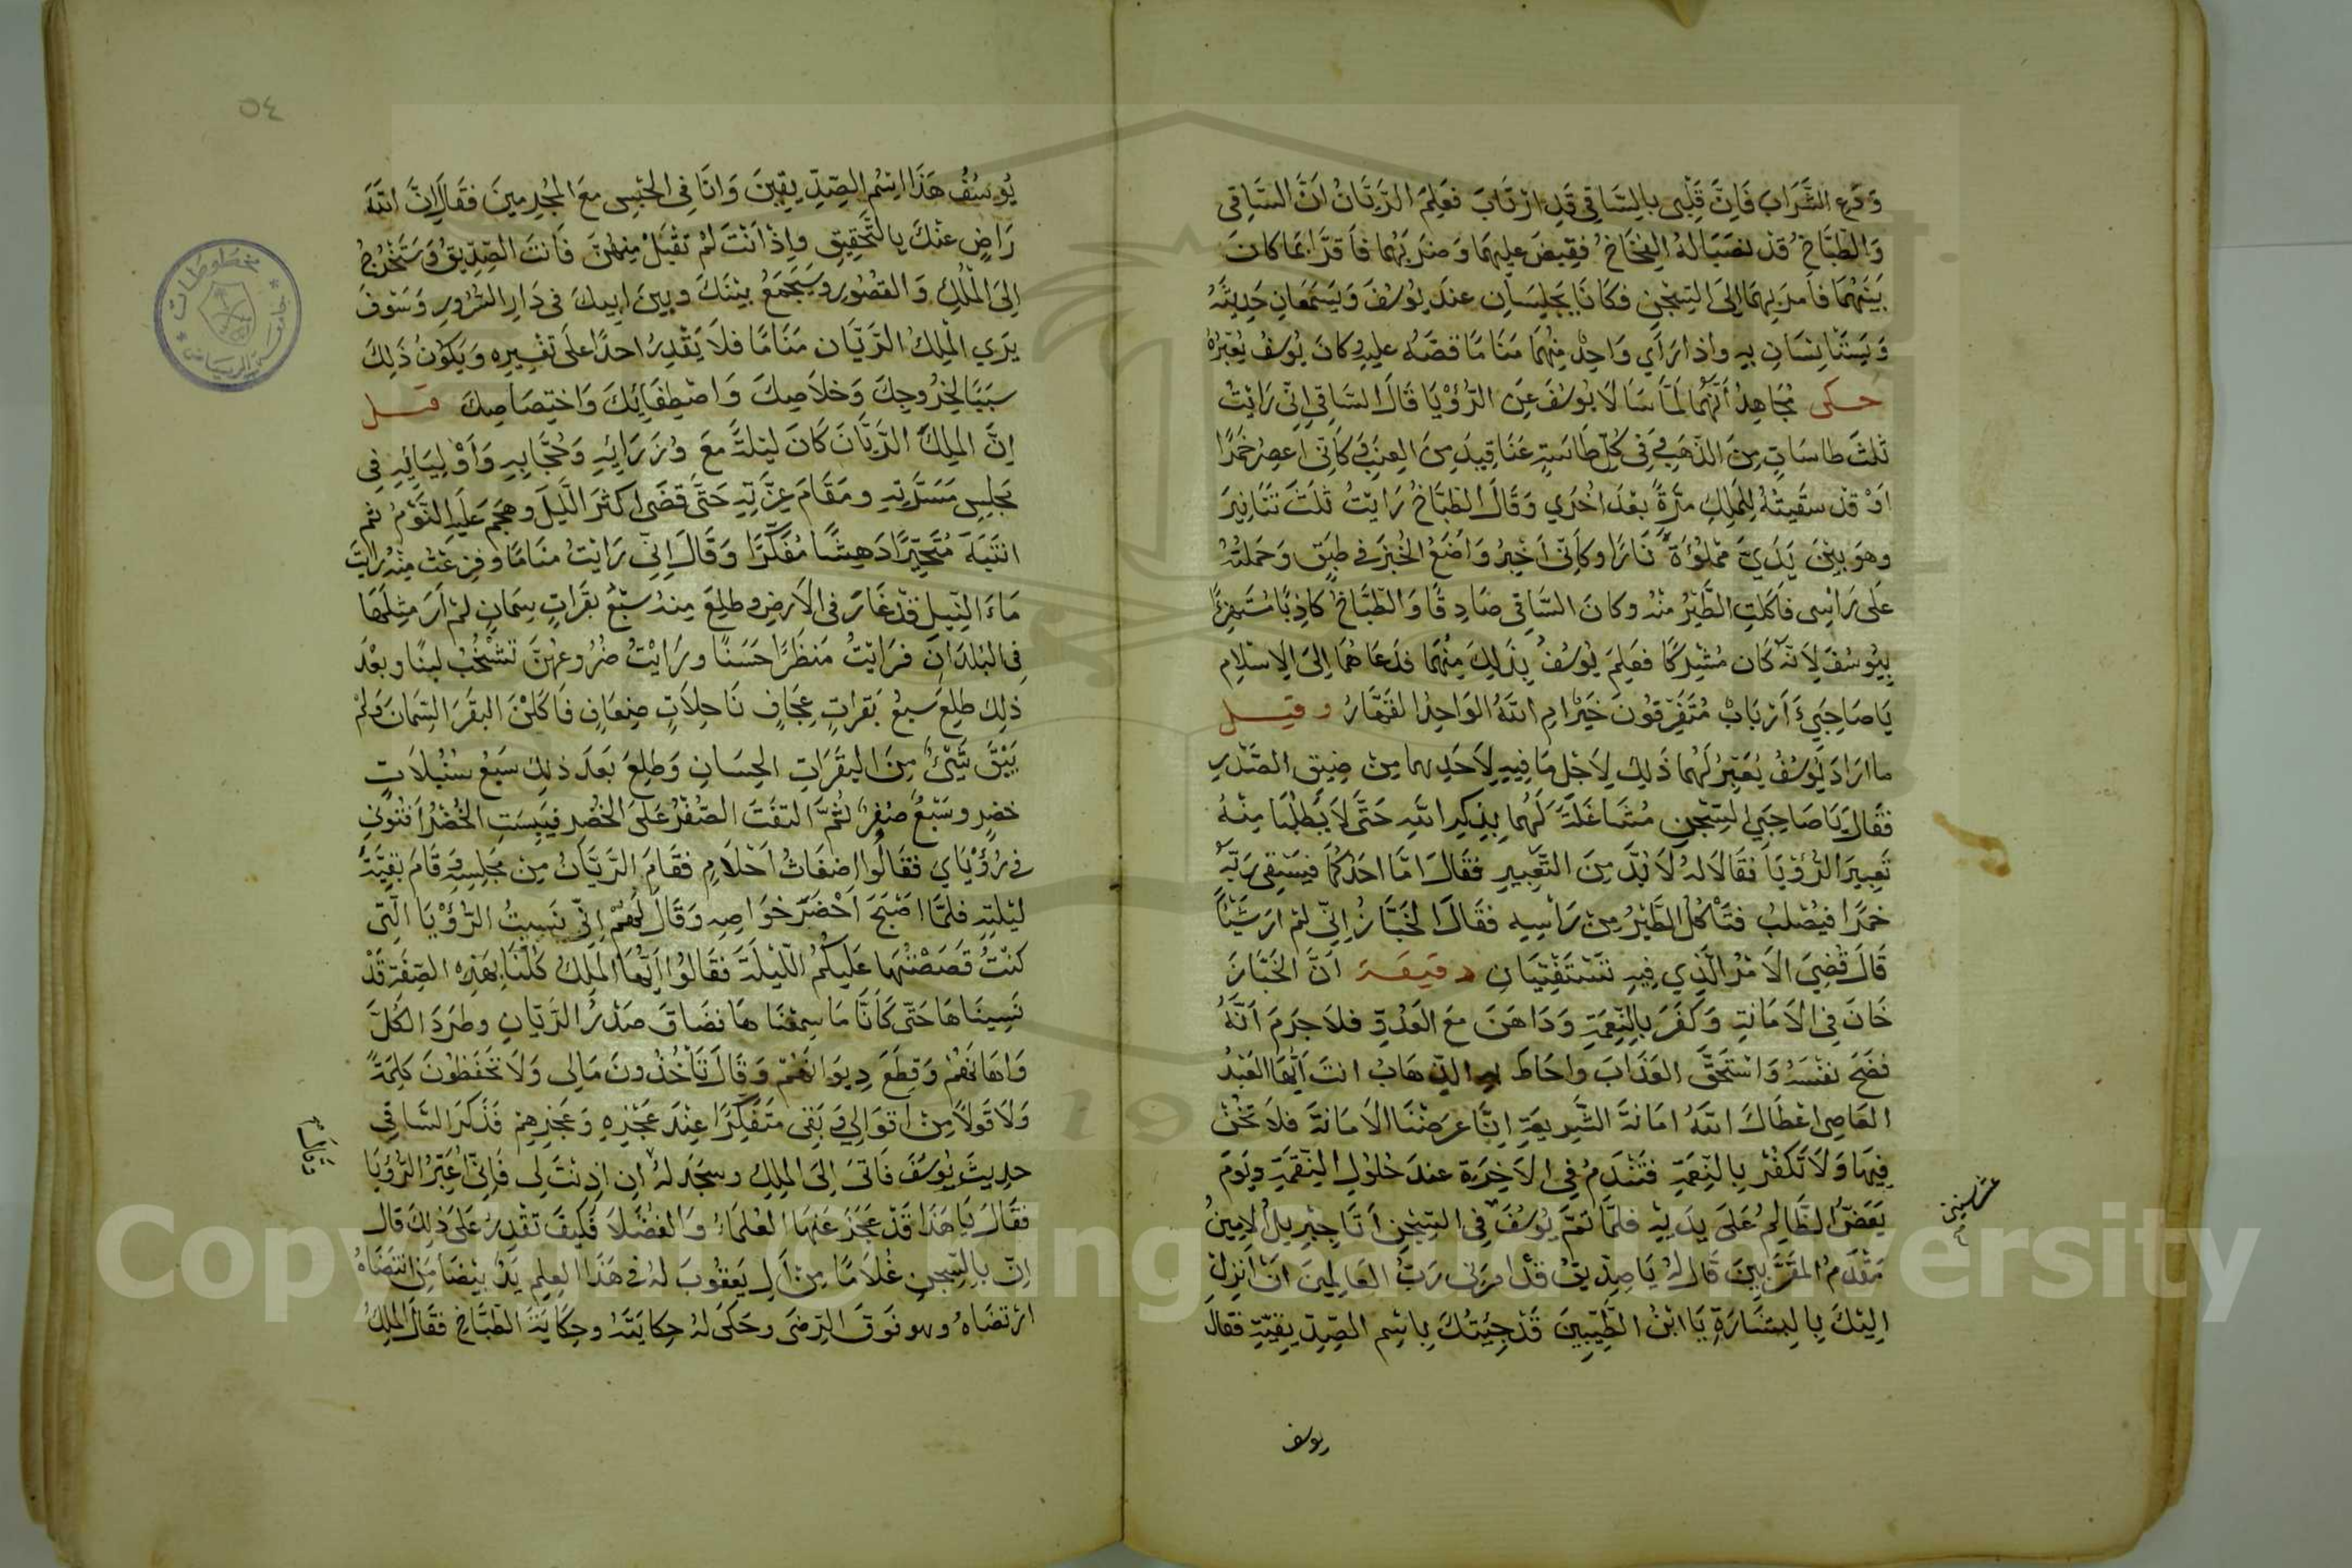 وَدَعِ الشَّرَابَ فَاِنَّ قَلْبِى بِالسَّاقِى قَدِ ارْتَابَ فَعَلِمَ الرَّيَّانُ اَنَّ السَّاقِى
وَالطَّبَّاخُ قَدْ نَصَبَا لَهُ الْفِخَاخُ فَقَبَضَ عَلَيْهِمَا وَضَرَبَهُمَا فَاَقَرَّا بِمَا كَانَ
بَيْنَهُمَا فَاَمَرَ بِهِمَا اِلَى السِّجْنِ فَكَانَا يَجْلِسَانِ عِنْدَ يُوسُفَ وَيَسْتَمِعَانِ حَدِيثَهُ
وَيَسْتَانِسَانِ بِهِ وَاِذَا رَاَي وَاحِدٌ مِنْهُمَا مَنَامًا قَصَّهُ عَلَيْهِ وَكَانَ يُوسُفُ يُعَبِّرُهُ
حكى مُجَاهِدُ اَنَّهُمَا لَمَّا سَاَلَا يُوسُفَ عَنِ الرُّؤْيَا قَالَ السَّاقِى اِنِّى رَاَيْتُ
ثَلَثَ طَاسَاتٍ مِنَ الذَّهَبِ وَفِى كُلِّ طَاسَةٍ عَنَاقِيدَ مِنَ الْعِنَبِ وَكَاَنِّى اَعْصِرُ خَمْرًا
اَوْ قَدْ سَقَيْتُهُ لِلْمَلِكِ مَرَّةً بَعْدَ اُخْرَي وَقَالَ الطَّبَّاخُ رَاَيْتُ ثَلَثَ تَنَانِيرَ
وَهُوَ بَيْنَ يَدَيَّ مَمْلُوْءَةً نَارًا وَكَاَنِّى اَخْبِزُ وَاَضَعُ الْخُبْزَ فِى طَبَقٍ وَحَمَلْتُهُ
عَلَى رَاْسِى فَاَكَلَتِ الطَّيْرُ مِنْهُ وَكَانَ السَّاقِى صَادِقًا وَالطَّبَّاخُ كَاذِبًا مُسْتَهْزِءًا
بِيُوسُفَ لِاَنَّهُ كَانَ مُشْرِكًا فَعَلِمَ يُوسُفُ بِذَلِكَ مِنْهُمَا فَدَعَاهُمَا اِلَى الْاِسْلَامِ
يَا صَاحِبَيَّ ءَاَرْبَابٌ مُتَفَرِّقُونَ خَيْرٌ اَمِ اللّٰهُ الْوَاحِدُ الْقَهَّارُ وقيل
مَا اَرَادَ يُوسُفُ يُعَبِّرُ لَهُمَا ذَلِكَ لِاَجْلِ مَا فِيهِ لِاَحَدِهِمَا مِنْ ضِيقِ الصَّدْرِ
فَقَالَ يَا صَاحِبَيِ السِّجْنِ مُشَاغَلَةً لَهُمَا بِذِكْرِ اللّٰهِ حَتَّى لَا يَطْلُبَا مِنْهُ
تَعْبِيرَ الرُّؤْيَا فَقَالَا لَهُ لَا بُدَّ مِنَ التَّعْبِيرِ فَقَالَ اَمَّا اَحَدُكُمَا فَيَسْقِى رَبَّهُ
خَمْرًا فَيُصْلَبُ فَتَاْكُلُ الطَّيْرُ مِنْ رَاْسِهِ فَقَالَ الْخَبَّازُ اِنِّى لَمْ اَرَ شَيْئًا
قَالَ قُضِيَ الْاَمْرُ الَّذِي فِيهِ تَسْتَفْتِيَانِ دقيقة اَنَّ الْخَبَّازَ
خَانَ فِى الْاَمَانَةِ وَكَفَرَ بِالنِّعْمَةِ وَدَاهَنَ مَعَ الْعَدُوِّ فَلَا جَرَمَ اَنَّهُ
فَضَحَ نَفْسَهُ وَاسْتَحَقَّ الْعَذَابَ وَاَحَاطَ بِهِ الذِّهَابُ اَنْتَ اَيُّهَا الْعَبْدُ
الْعَاصِى اَعْطَاكَ اللّٰهُ اَمَانَةَ الشَّرِيعَةِ اِنَّا عَرَضْنَا الْاَمَانَةَ فَلَا تَخُنْ
فِيهَا وَلَا تَكْفُرْ بِالنِّعْمَةِ فَتَنْدَمُ فِى الْاَخِرَةِ عِنْدَ حُلُولِ النِّقْمَةِ وَيَوْمَ
يَعَضُّ الظَّالِمُ عَلَى يَدَيْهِ فَلَمَّا تَمَّ يُوسُفَ فِى السِّجْنِ اَتَا جِبْرِيلُ الْاَمِينُ
مَقْدَمُ الْمُقَرَّبِينَ قَالَ لَهُ يَا صِدِّيقُ قَدْ اَمَرَنِى رَبُّ الْعَالَمِينَ اَنْ اَنْزِلَ
اِلَيْكَ بِالْبِشَارَةِ يَا ابْنَ الطَّيِّبِينَ قَدْ جِئْتُكَ بِاسْمِ الصِّدِّيقِيَّةِ فَقَالَ
يوسف
٥٤
يُوسُفُ هَذَا اِسْمُ الصِّدِّيقِينَ وَاَنَا فِى الْحَبْسِ مَعَ الْمُجْرِمِينَ فَقَالَ اِنَّ اللّٰهَ
رَاضٍ عَنْكَ بِالتَّحْقِيقِ وَاِذْ اَنْتَ لَمْ تَقْبَلْ مِنْهُنَّ فَاَنْتَ الصِّدِّيقُ وَسَتَخْرُجُ
اِلَى الْمُلْكِ وَالْقُصُورِ وَسَيَجْمَعُ بَيْنَكَ وَبَيْنَ اَبِيكَ فِى دَارِ السُّرُورِ وَسَوْفَ
يَرَي الْمَلِكُ الرَّيَّان مَنَامًا فَلَا يَقْدِرُ اَحَدًا عَلَى تَفْسِيرِهِ وَيَكُونُ ذَلِكَ
سَبَبًا لِخُرُوجِكَ وَخَلَاصِكَ وَاصْطِفَائِكَ وَاخْتِصَاصِكَ قيل
اِنَّ الْمَلِكَ الرَّيَّانَ كَانَ لَيْلَةً مَعَ وُزَرَائِهِ وَحُجَّابِهِ وَاَوْلِيَائِهِ فِى
مَجْلِسِ مَسَرَّتِهِ وَمَقَامَ عِزَّتِهِ حَتَّى قَضَى اَكْثَرَ الَّيْلَ وَهَجَمَ عَلَيْهِ النَّوْمُ ثُمَّ
انْتَبَهَ مُتَحَيِّرًا دَهِشًا مُفَكِّرًا وَقَالَ اِنِّى رَاَيْتُ مَنَامًا وَفَزِعْتُ مِنْهُ رَاَيْتُ
مَاءَ النِّيلِ قَدْ غَارَ فِى الْاَرْضِ وَطَلِعَ مِنْهُ سَبْعُ بَقَرَاتٍ سِمَانٍ لَمْ اَرَ مِثْلَهَا
فِى الْبُلْدَانِ فَرَاَيْتُ مَنْظَرًا حَسَنًا وَرَاَيْتُ ضُرُوعَهُنَّ تَشْخَبُ لَبَنًا وَبَعْدَ
ذَلِكَ طَلِعَ سَبْعُ بَقَرَاتٍ عِجَافٍ نَاحِلَاتٍ ضِعَافٍ فَاَكَلْنَ الْبَقَرَ السِّمَانَ وَلَمْ
يَبْقَ شَيْئٌ مِنَ الْبَقَرَاتِ الْحِسَانِ وَطَلِعَ بَعْدَ ذَلِكَ سَبْعُ سُنْبُلَاتٍ
خُضْرٍ وَسَبْعُ صُفْرٍ ثُمَّ الْتَفَتَ الصُّفْرُ عَلَى الْخُضْرِ فَيَبِسَتِ الْخُضْرُ اَفْتُونِى
فِى رُؤْيَايَ فَقَالُوا اَضْغَاثُ اَحْلَامٍ فَقَامَ الرَّيَّانُ مِنْ مَجْلِسِهِ وَقَامَ بَقِيَّةَ
لَيْلَتِهِ فَلَمَّا اَصْبَحَ اَحْضَرَ خَوَاصِهِ وَقَالَ لَهُمْ اِنِّى نَسِيتُ الرُّؤْيَا الَّتِى
كُنْتُ قَصَصْتُهَا عَلَيْكُمْ اللَّيْلَةَ فَقَالُوا اَيُّهَا الْمَلِكُ كُلُّنَا بِهَذِهِ الصِّفَةِ قَدْ
نَسِينَاهَا حَتَّى كَاَنَّا مَا سَمِعْنَاهَا فَضَاقَ صَدْرُ الرَّيَّانِ وَطَرَدَ الْكُلَّ
وَاَهَانَهُمْ وَقَطَعَ دِيوَانَهُمْ وَقَالَ تَاْخُذُونَ مَالِى وَلَا تَحْفَظُونَ كَلِمَةً
وَلَا قَوْلًا مِنْ اَقْوَالِى وَبَقِى مُتَفَكِّرًا عِنْدَ عَجْزِهِ وَعَجْزِهِمْ فَذَكَرَ السَّاقِى
حَدِيثَ يُوسُفَ فَاَتَى اِلَى الْمَلِكِ وَسَجَدَ لَهُ اِن اَذِنْتَ لِى فَاِنِّى اُعَبِّرُ الرُّؤْيَا
وقال
فَقَالَ يَا هَذَا قَدْ عَجَزَ عَنْهَا الْعُلَمَاءُ وَالْفُضَلَا فَكَيْفَ تَقْدِرُ عَلَى ذَلِكَ قَالَ
اِنَّ بِالسِّجْنِ غُلَامًا مِنْ اَلِ يَعْقُوبَ لَهُ فِى هَذَا الْعِلْمِ يَدٌ بَيْضَا مَنِ انْتَضَاهُ
ارْتَضَاهُ وَهُوَ فَوْقَ الرِّضَى وَحَكَى لَهُ حِكَايَتَهُ وَحِكَايَةَ الطَّبَّاخِ فَقَالَ الْمَلِكُ
مخطوطات
جامعة الرياض
Copyright © King Saud University